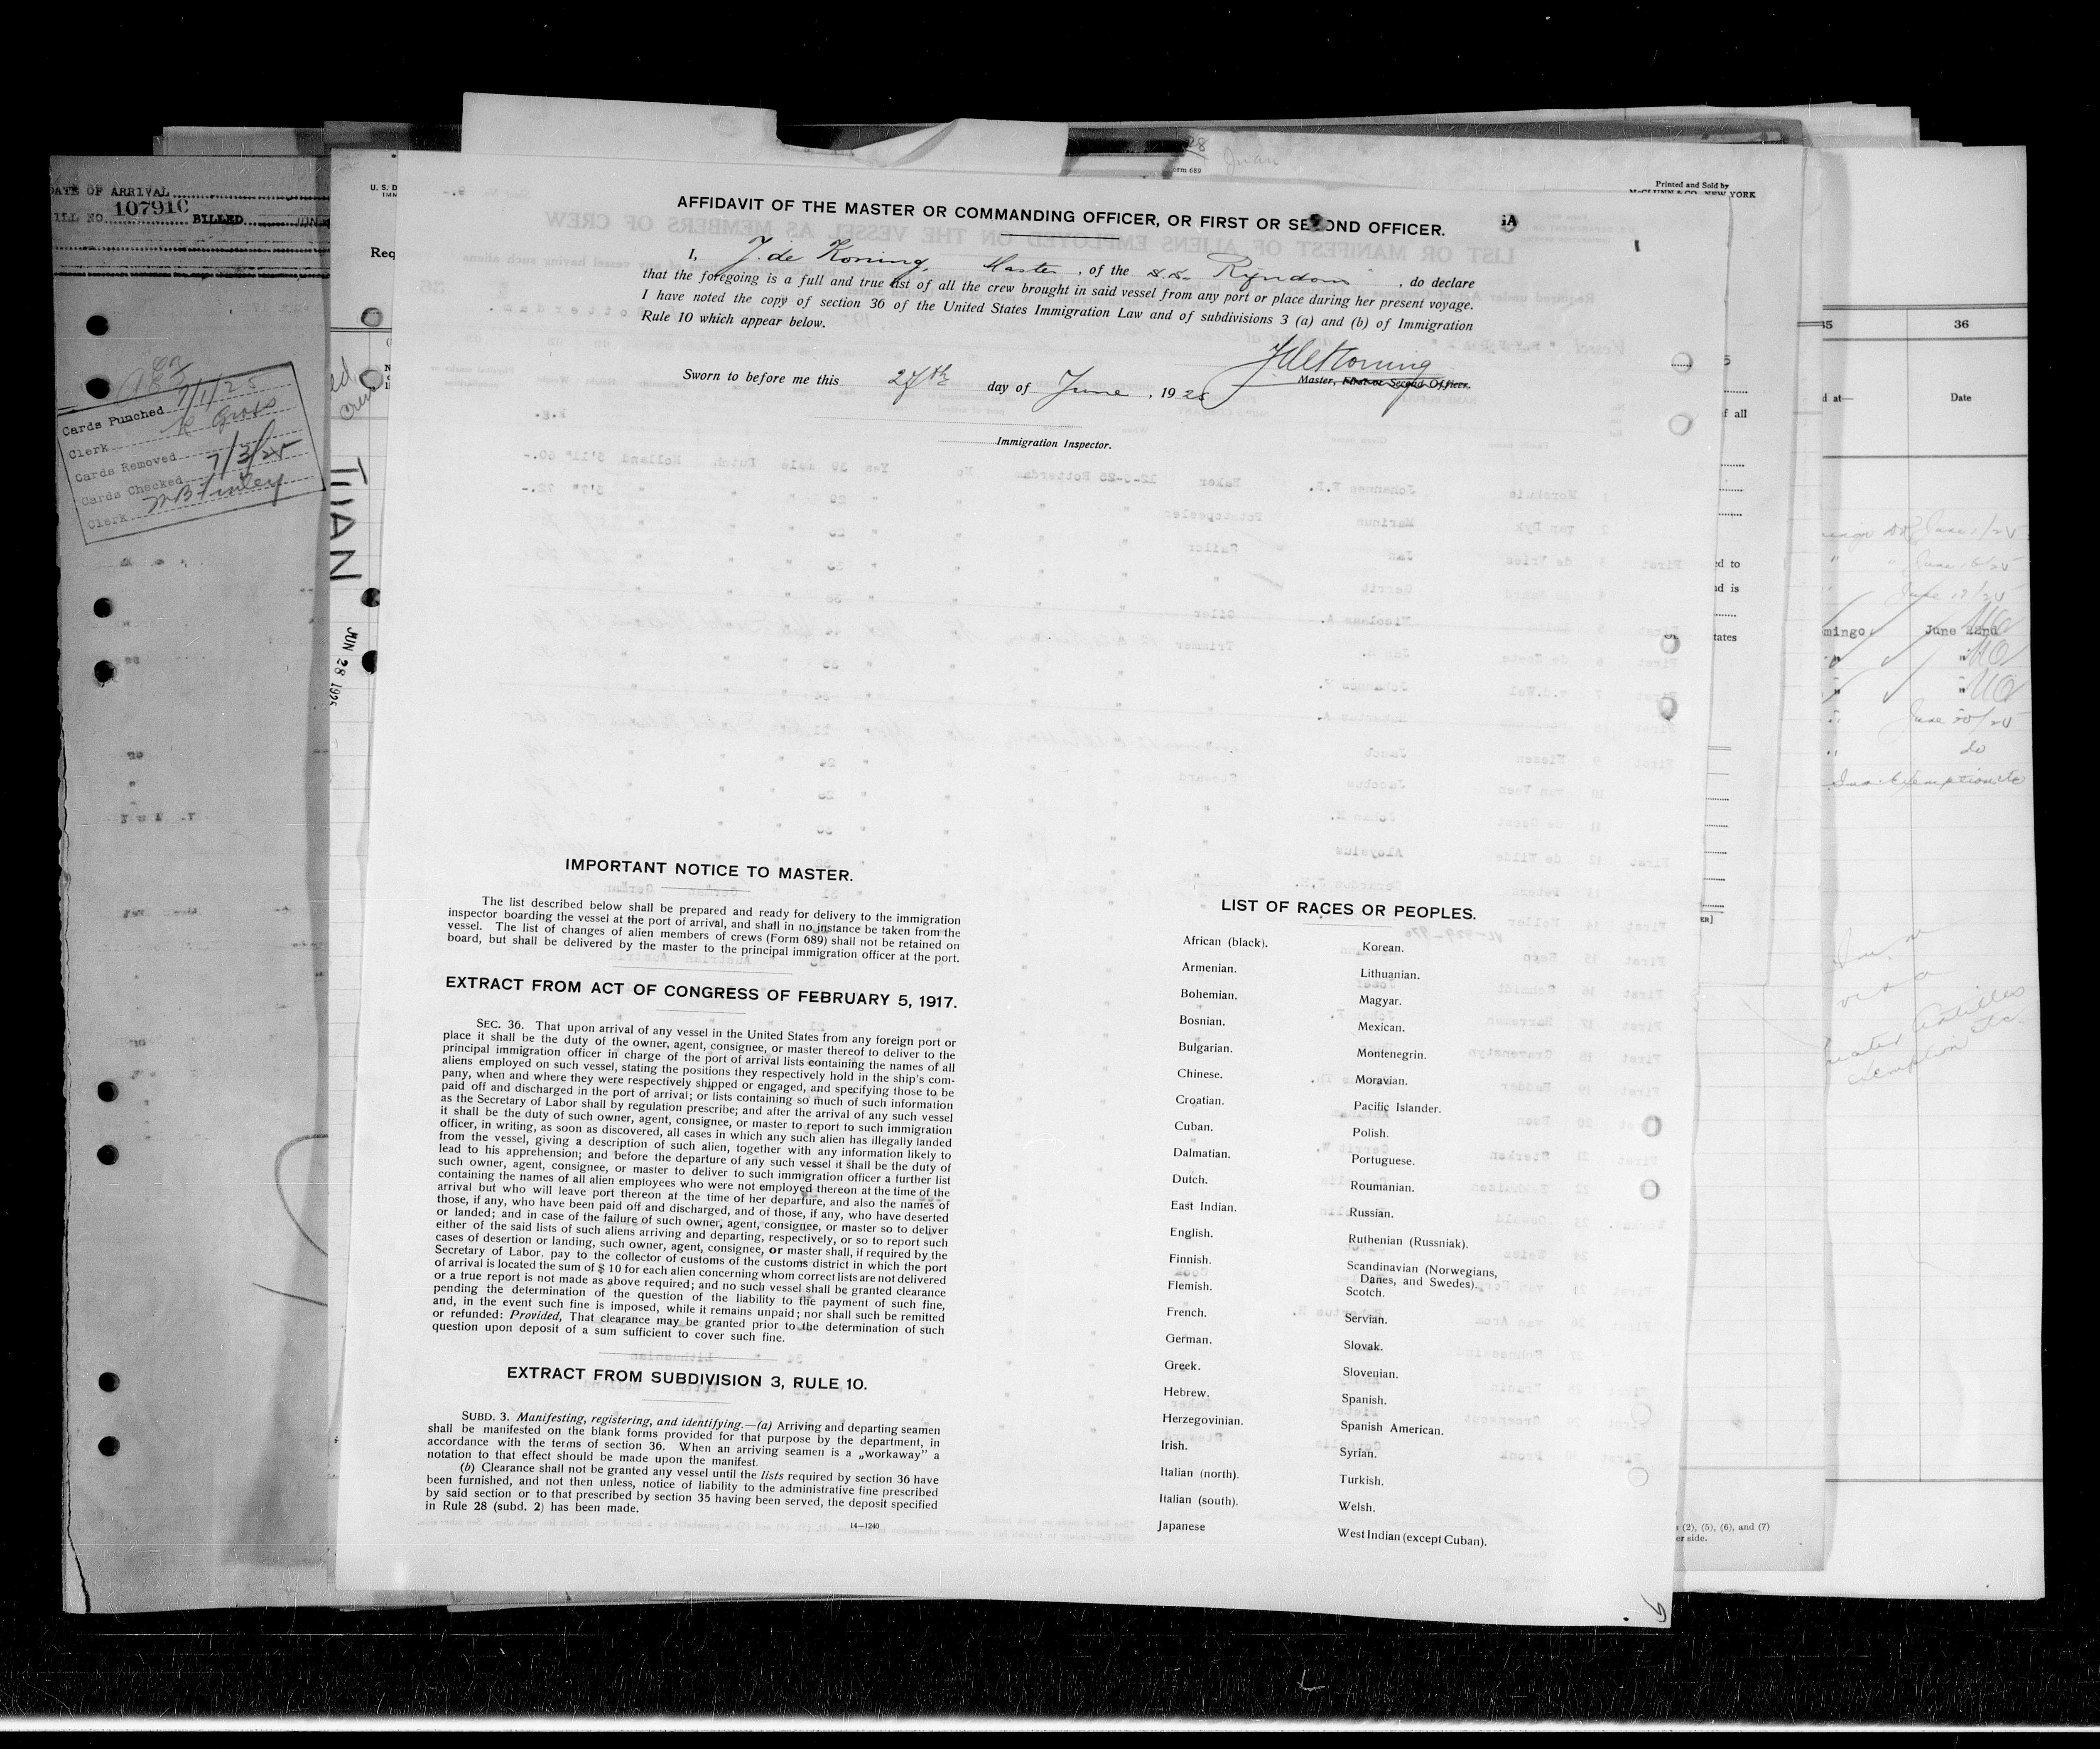 DATE OF ARRIVAL
BILL NO. 107910 BILLED
Cards Punched 7/1/25
Clerk K Gross
Cards Removed
Cards Checked 7/3/25
Clerk
JUN 28 1925
U. S. D
IMM
Req
28
Juan
Form 689
Printed and Sold by
NEW YORK
AFFIDAVIT OF THE MASTER OR COMMANDING OFFICER, OR FIRST OR SECOND OFFICER.
I, J. de Koning, Master, of the s.s. Ryndam, do declare
that the foregoing is a full and true list of all the crew brought in said vessel from any port or place during her present voyage.
I have noted the copy of section 36 of the United States Immigration Law and of subdivisions 3 (a) and (b) of Immigration
Rule 10 which appear below.
JdeKoning
Master, First or Second Officer.
Sworn to before me this 27th day of June, 1925
Immigration Inspector.
IMPORTANT NOTICE TO MASTER.
The list described below shall be prepared and ready for delivery to the immigration
inspector boarding the vessel at the port of arrival, and shall in no instance be taken from the
vessel. The list of changes of alien members of crews (Form 689) shall not be retained on
board, but shall be delivered by the master to the principal immigration officer at the port.
EXTRACT FROM ACT OF CONGRESS OF FEBRUARY 5, 1917.
SEC. 36. That upon arrival of any vessel in the United States from any foreign port or
place it shall be the duty of the owner, agent, consignee, or master thereof to deliver to the
principal immigration officer in charge of the port of arrival lists containing the names of all
aliens employed on such vessel, stating the positions they respectively hold in the ship's com-
pany, when and where they were respectively shipped or engaged, and specifying those to be
paid off and discharged in the port of arrival; or lists containing so much of such information
as the Secretary of Labor shall by regulation prescribe; and after the arrival of any such vessel
it shall be the duty of such owner, agent, consignee, or master to report to such immigration
officer, in writing, as soon as discovered, all cases in which any such alien has illegally landed
from the vessel, giving a description of such alien, together with any information likely to
lead to his apprehension; and before the departure of any such vessel it shall be the duty of
such owner, agent, consignee, or master to deliver to such immigration officer a further list
containing the names of all alien employees who were not employed thereon at the time of the
arrival but who will leave port thereon at the time of her departure, and also the names of
those, if any, who have been paid off and discharged, and of those, if any, who have deserted
or landed; and in case of the failure of such owner, agent, consignee, or master so to deliver
either of the said lists of such aliens arriving and departing, respectively, or so to report such
cases of desertion or landing, such owner, agent, consignee, or master shall, if required by the
Secretary of Labor, pay to the collector of customs of the customs district in which the port
of arrival is located the sum of $ 10 for each alien concerning whom correct lists are not delivered
or a true report is not made as above required; and no such vessel shall be granted clearance
pending the determination of the question of the liability to the payment of such fine,
and, in the event such fine is imposed, while it remains unpaid; nor shall such be remitted
or refunded: Provided, That clearance may be granted prior to the determination of such
question upon deposit of a sum sufficient to cover such fine.
EXTRACT FROM SUBDIVISION 3, RULE 10.
SUBD. 3. Manifesting, registering, and identifying.—(a) Arriving and departing seamen
shall be manifested on the blank forms provided for that purpose by the department, in
accordance with the terms of section 36. When an arriving seamen is a „workaway” a
notation to that effect should be made upon the manifest.
(b) Clearance shall not be granted any vessel until the lists required by section 36 have
been furnished, and not then unless, notice of liability to the administrative fine prescribed
by said section or to that prescribed by section 35 having been served, the deposit specified
in Rule 28 (subd. 2) has been made.
14—1240
LIST OF RACES OR PEOPLES.
African (black).
Armenian.
Bohemian.
Bosnian.
Bulgarian.
Chinese.
Croatian.
Cuban.
Dalmatian.
Dutch.
East Indian.
English.
Finnish.
Flemish.
French.
German.
Greek.
Hebrew.
Herzegovinian.
Irish.
Italian (north).
Italian (south).
Japanese
Korean.
Lithuanian.
Magyar.
Mexican.
Montenegrin.
Moravian.
Pacific Islander.
Polish.
Portuguese.
Roumanian.
Russian.
Ruthenian (Russniak).
Scandinavian (Norwegians,
Danes, and Swedes).
Scotch.
Servian.
Slovak.
Slovenian.
Spanish.
Spanish American.
Syrian.
Turkish.
Welsh.
West Indian (except Cuban).
35
36
d at—
Date
f all
ed to
d is
tates
mingo
June 22nd
do
(2), (5), (6), and (7)
er side.